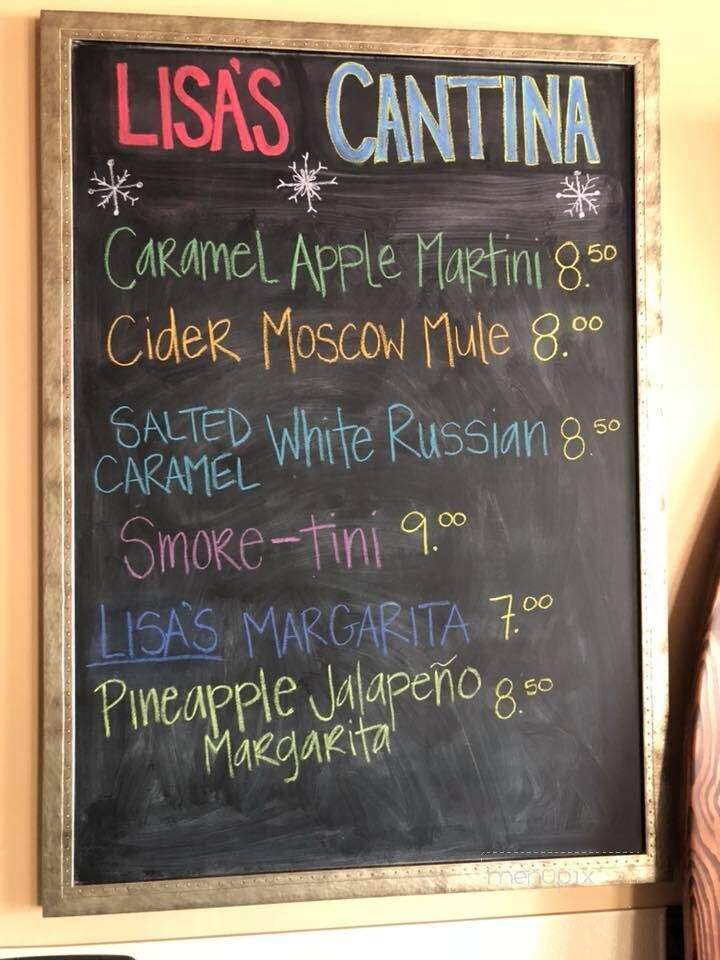 LISA'S CANTINA
Caramel Apple Martini 8.50
Cider Moscow Mule 8.00
SALTED CARAMEL White Russian 8.50
Smore-tini 9.00
LISA'S MARGARITA 7.00
Pineapple Jalapeño 8.50
Margarita
menupix